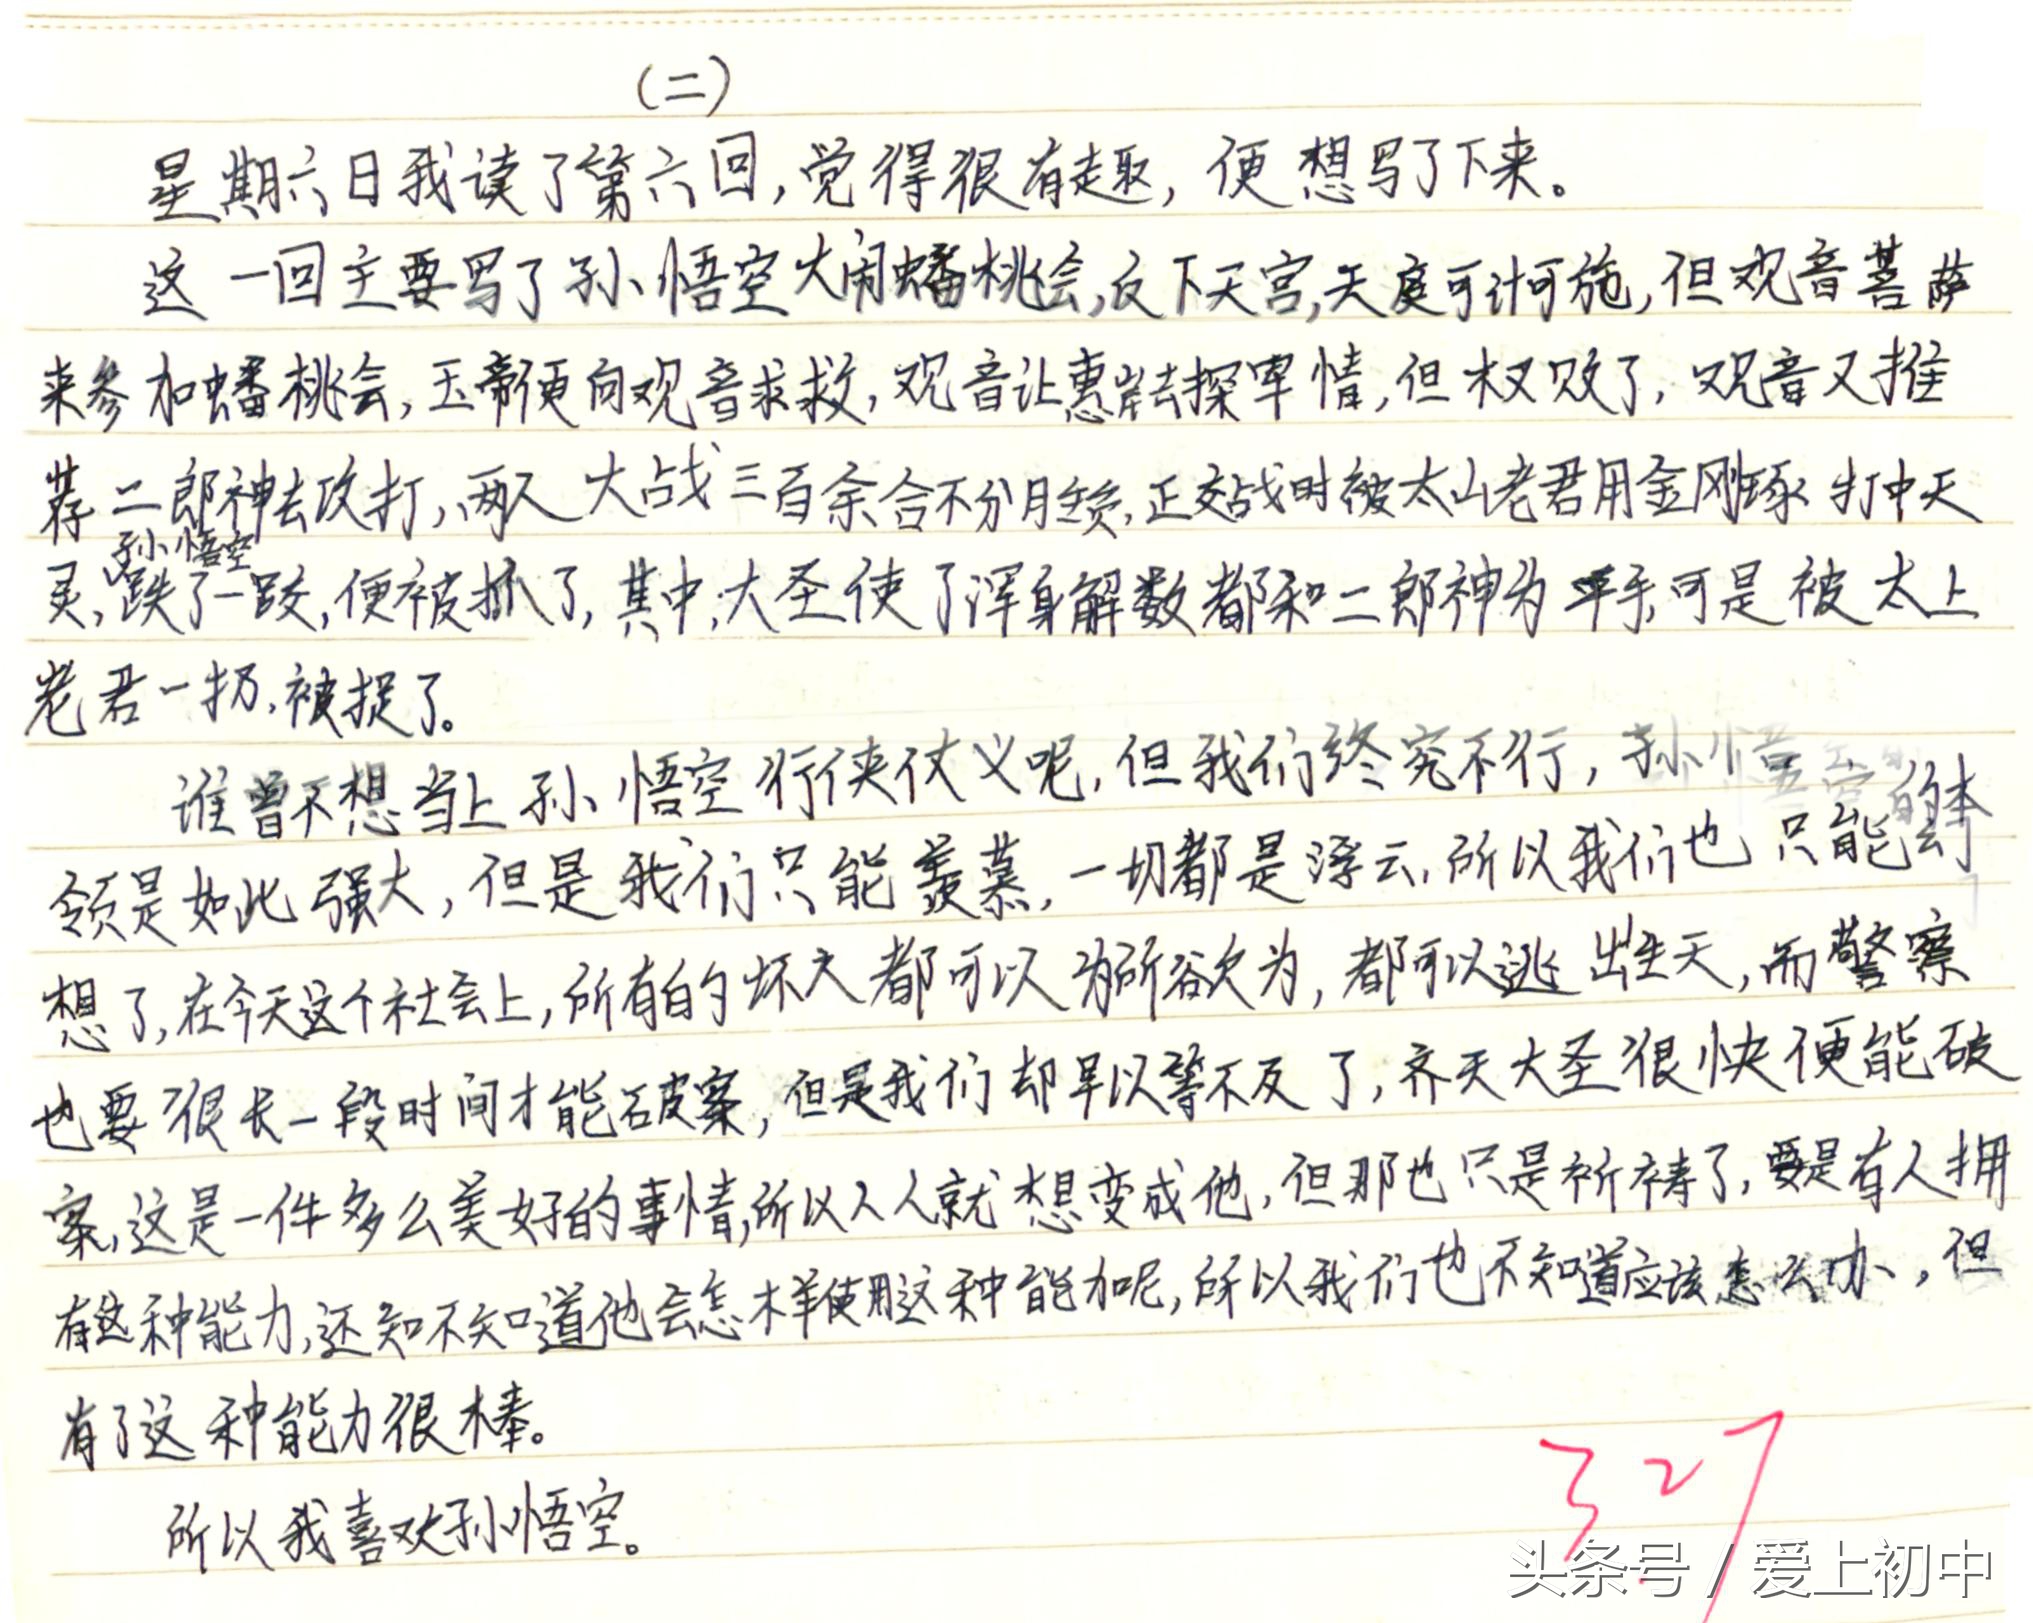 （二）
星期六日我读了第六回，觉得很有趣，便想写了下来。
这一回主要写了孙悟空大闹蟠桃会，反下天宫，天庭可计可施，但观音菩萨
来参加蟠桃会，玉帝便向观音求救，观音让惠岸去探军情，但木叉败了，观音又推
荐二郎神去攻打，两人大战三百余合不分胜负，正交战时被太山老君用金刚琢打中天
孙悟空
灵，跌了一跤，便被抓了，其中，大圣使了浑身解数都和二郎神为平手，可是被太上
老君一扔，被捉了。
谁曾不想当上孙悟空行侠仗义呢，但我们终究不行，孙悟空的本
领是如此强大，但是我们只能羡慕，一切都是浮云，所以我们也只能幻
想了，在今天这个社会上，所有的坏人都可以为所欲为，都可以逃出生天，而警察
也要很长一段时间才能破案，但是我们却早以等不及了，齐天大圣很快便能破
案，这是一件多么美好的事情，所以人人就想变成他，但那也只是祈祷了，要是有人拥
有这种能力，还知不知道他会怎样使用这种能力呢，所以我们也不知道应该怎么办，但
有了这种能力很棒。
所以我喜欢孙悟空。
327
头条号 / 爱上初中